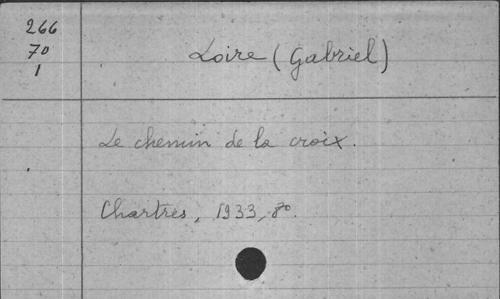 266
70
1
Loire (Gabriel)
Le chemin de la croix.
Chartres, 1933, 8º.